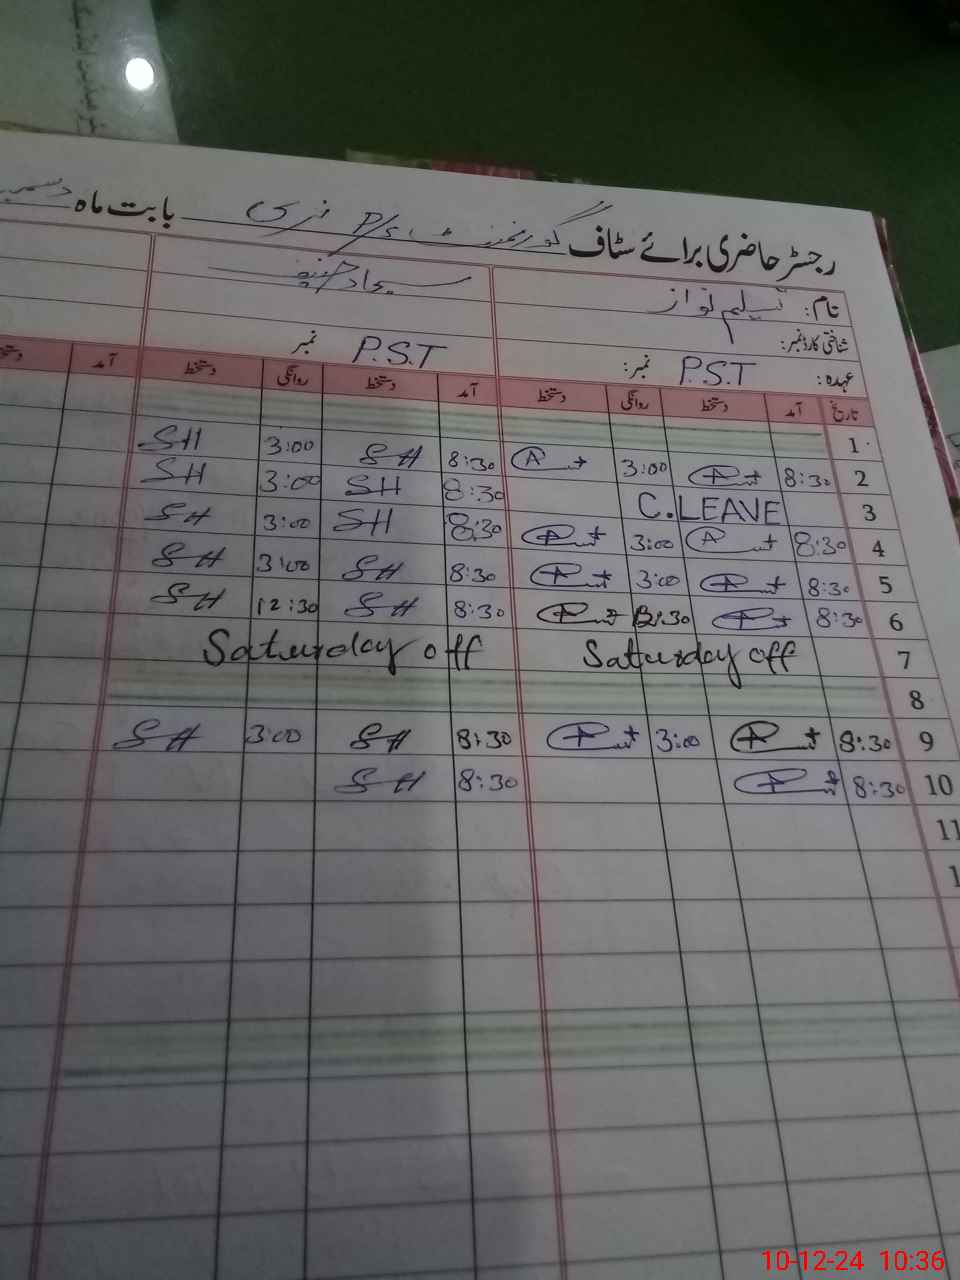 رجسٹر حاضری برائے سٹاف گورنمنٹ P/S بابت ماہ دسمبر
نام: نواز
شناختی کارڈ نمبر:
عہدہ: P.S.T نمبر: P.S.T نمبر
تاریخ آمد دستخط روانگی دستخط آمد دستخط روانگی دستخط آمد
1
2 8:30 3:00 8:30 SH 3:00 SH
3 C.LEAVE 8:30 SH 3:00 SH
4 8:30 3:00 8:30 SH 3:00 SH
5 8:30 3:00 8:30 SH 3:00 SH
6 8:30 12:30 8:30 SH 12:30 SH
7 Saturday off Saturday off
8
9 8:30 3:00 8:30 SH 3:00 SH
10 8:30 8:30 SH
11
10-12-24 10:36